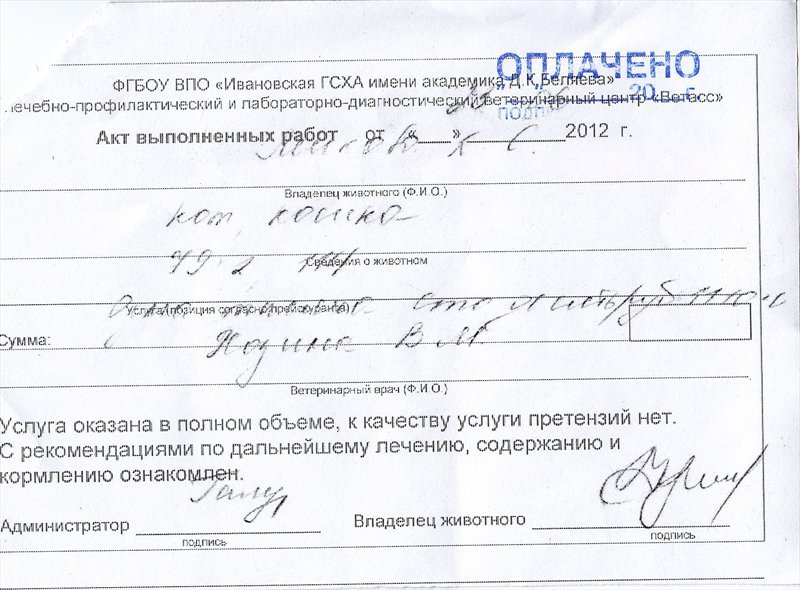 ОПЛАЧЕНО
ФГБОУ ВПО «Ивановская ГСХА имени академика Д.К.Беляева»
лечебно-профилактический и лабораторно-диагностический ветеринарный центр «Ветасс»
20 г.
подпись
Акт выполненных работ от «___»__________2012 г.
К С.
Владелец животного (Ф.И.О.)
кот, кошка
79. 2
Сведения о животном
сто
Услуга (позиция согласно прейскуранта)
Сумма:
В М
Ветеринарный врач (Ф.И.О.)
Услуга оказана в полном объеме, к качеству услуги претензий нет.
С рекомендациями по дальнейшему лечению, содержанию и
кормлению ознакомлен.
Администратор ________________ Владелец животного ________________
подпись подпись